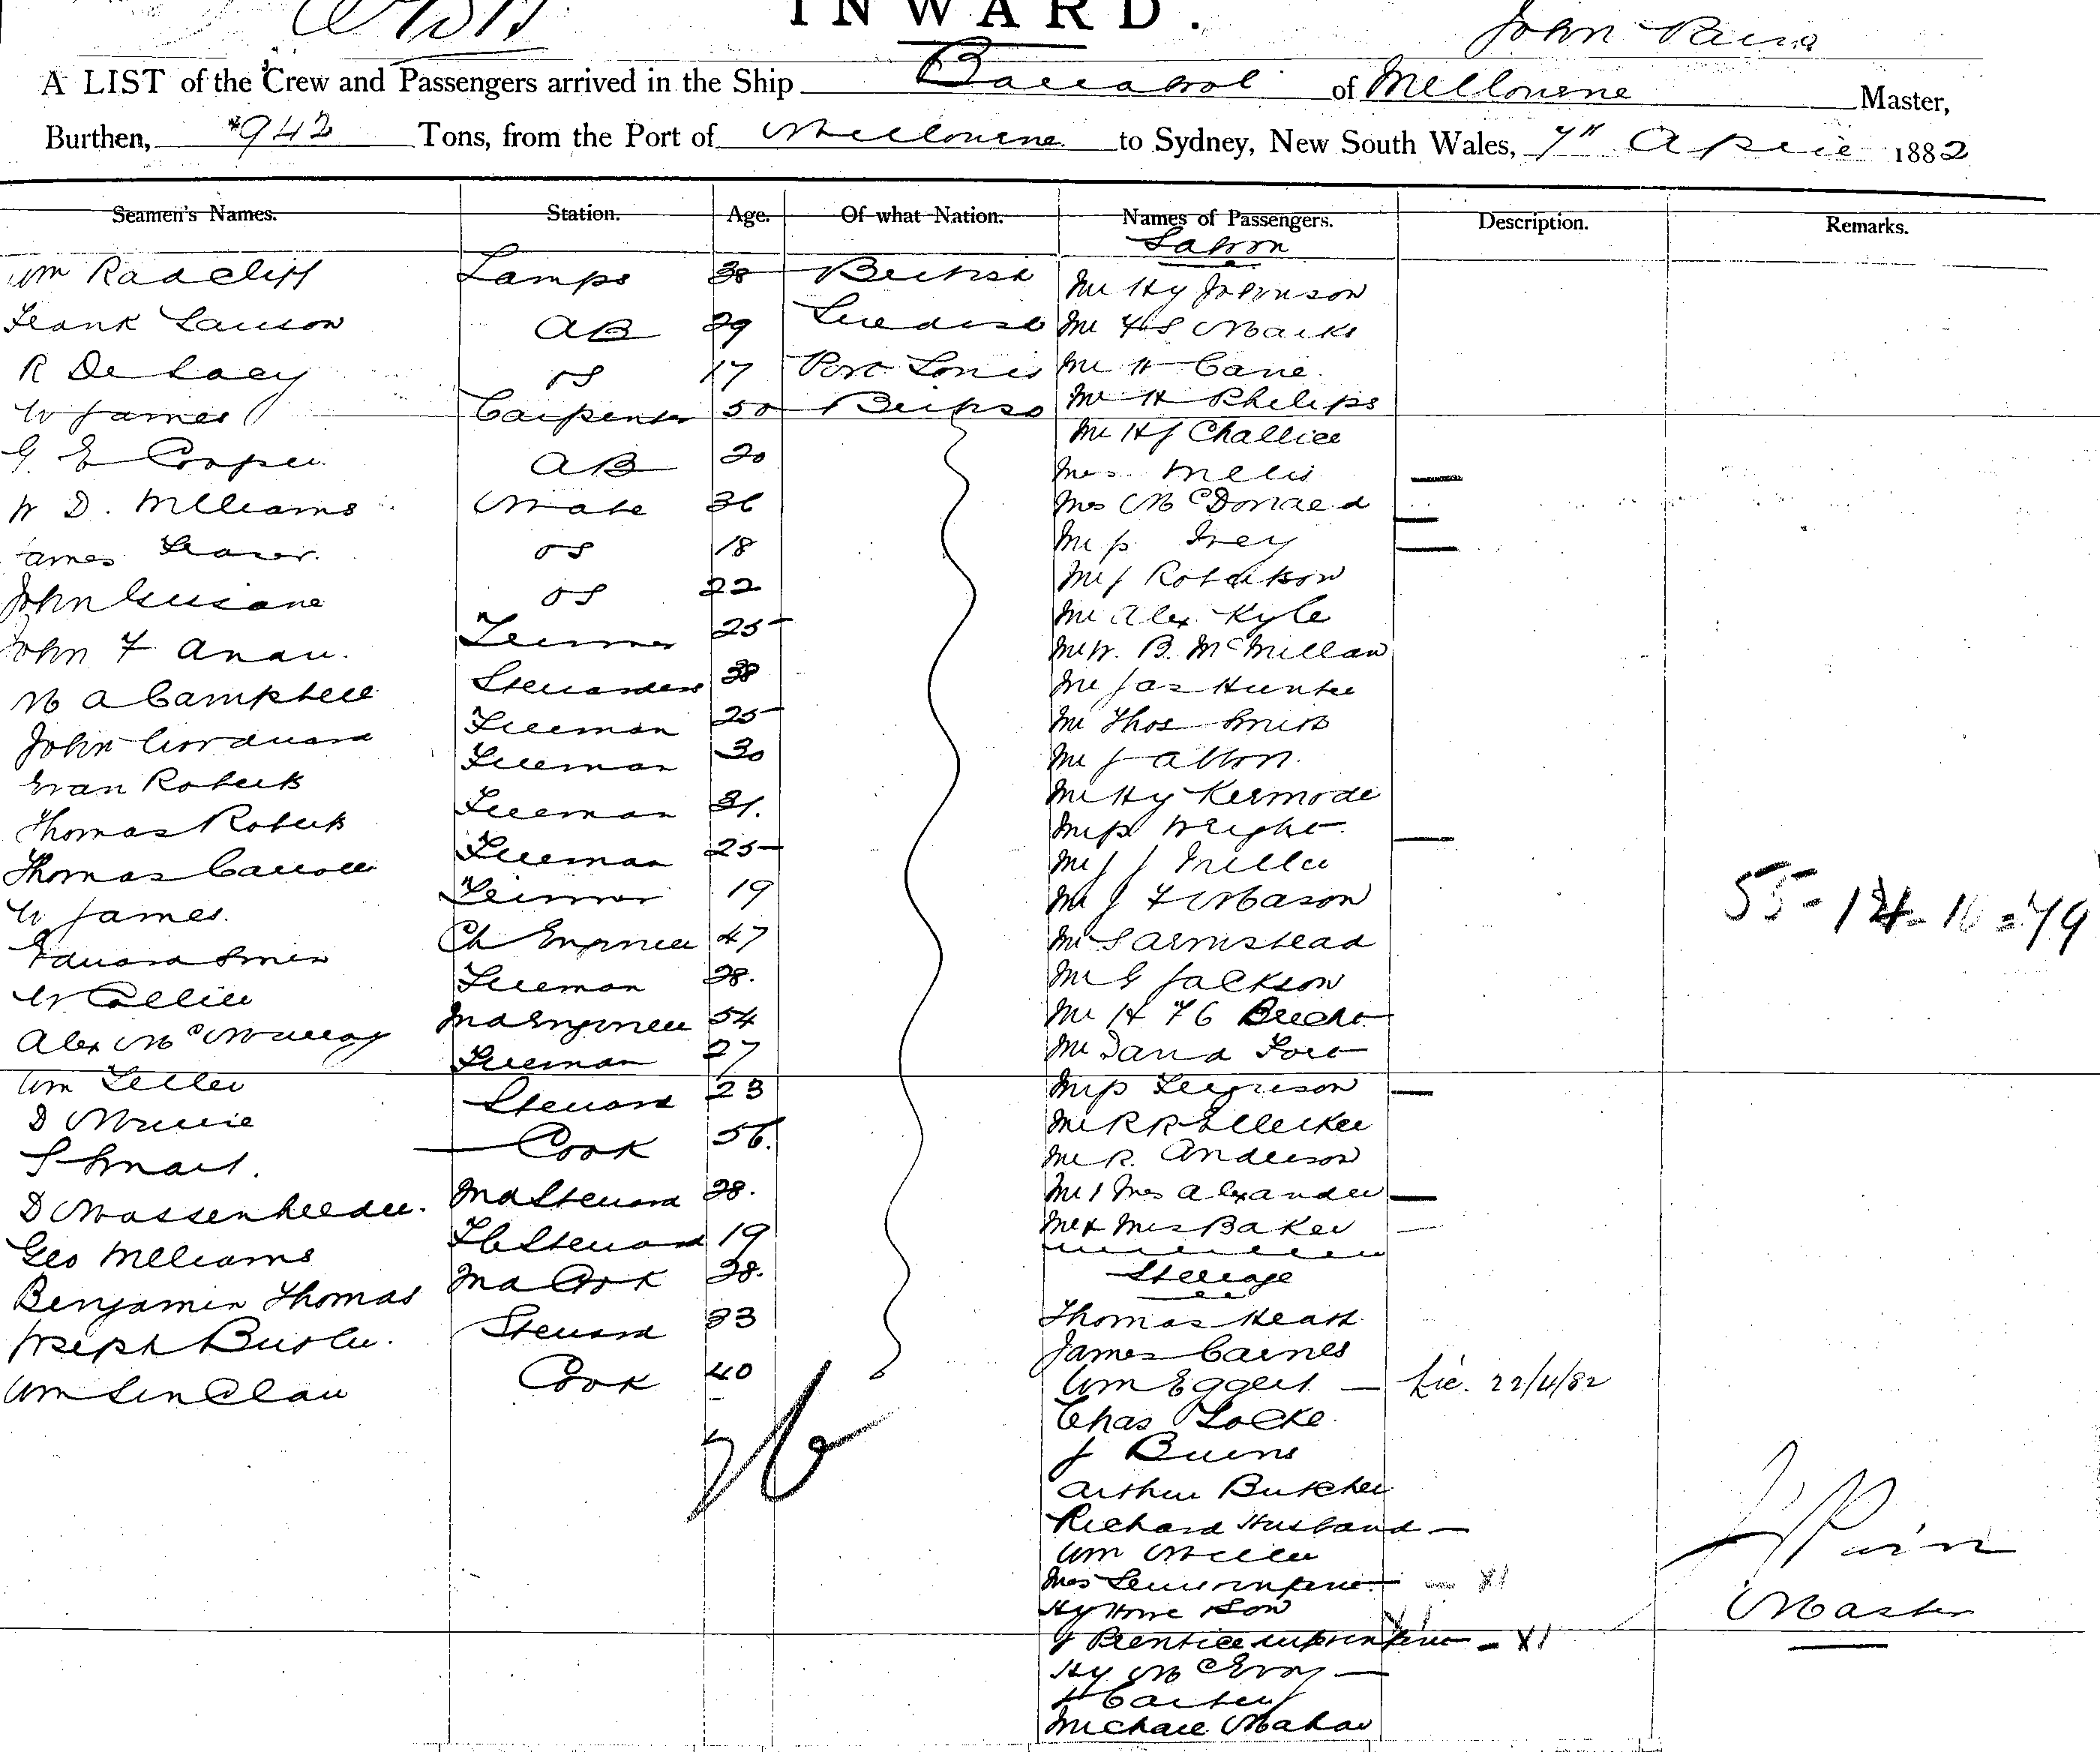 INWARD.
John Pain
A LIST of the Crew and Passengers arrived in the Ship Barrabool of Melbourne Master,
Burthen, 942 Tons, from the Port of Melbourne to Sydney, New South Wales, 7th April 1882
Seamen's Names. Station. Age. Of what Nation. Names of Passengers. Description. Remarks.
Saloon
Wm Radcliff Lamps 38 British Mr Hy Johnson
Frank Lawson AB 29 Swedish Mr H S Marks
R De Lacy OS 17 Port Louis Mr H Cane
W James Carpenter 50 British Mr H Philips
Mr H J Challice
G E Cooper AB 20 Mrs Mellis
W D. Williams Mate 36 Mrs McDonald
James Fraser OS 18 Miss Ivey
John OS 22 Mr J Robertson
Mr Alex Kyle
John F Trimmer 25 Mr W. B. McMillan
M A Campbell Stewardess 38 Mr Jas Hunter
John Fireman 25 Mr Thos Smith
Evan Roberts Fireman 30 Mr J
Thomas Roberts Fireman 31. Mr Hy Kermode
Thomas Carroll Fireman 25 Miss Wright
Mr J J Miller
W James. Trimmer 19 Mr J F Mason
Edward Smith Ch Engineer 47 Mr S Armstead
W Collier Fireman 28. Mr G Jackson
Alex McMurray 2nd Engineer 54 Mr H F G
Wm Fireman 27 Mr David
D Steward 23 Miss Ferguson
S Smart. Cook 56. Mr R R Ellerker
Mr R. Anderson
D 2nd Steward 28. Mr & Mrs Alexander
Geo Williams F C Steward 19 Mr & Mrs Baker
Steerage
Benjamin Thomas 2nd Cook 28.
Joseph Butler. Steward 33 Thomas Heath
Wm Sinclair Cook 40 James Carnes
Wm Eggert Lic. 22/4/82
26 Chas Locke.
J Burns
Arthur Butcher
Richard Husband
Wm Miller
Mrs infant X1
Hy Howe & Son X1
J Prentice wife & infant X1
Hy McEvoy
Michael Mahar
55 - 14 - 10 = 79
J Pain
Master